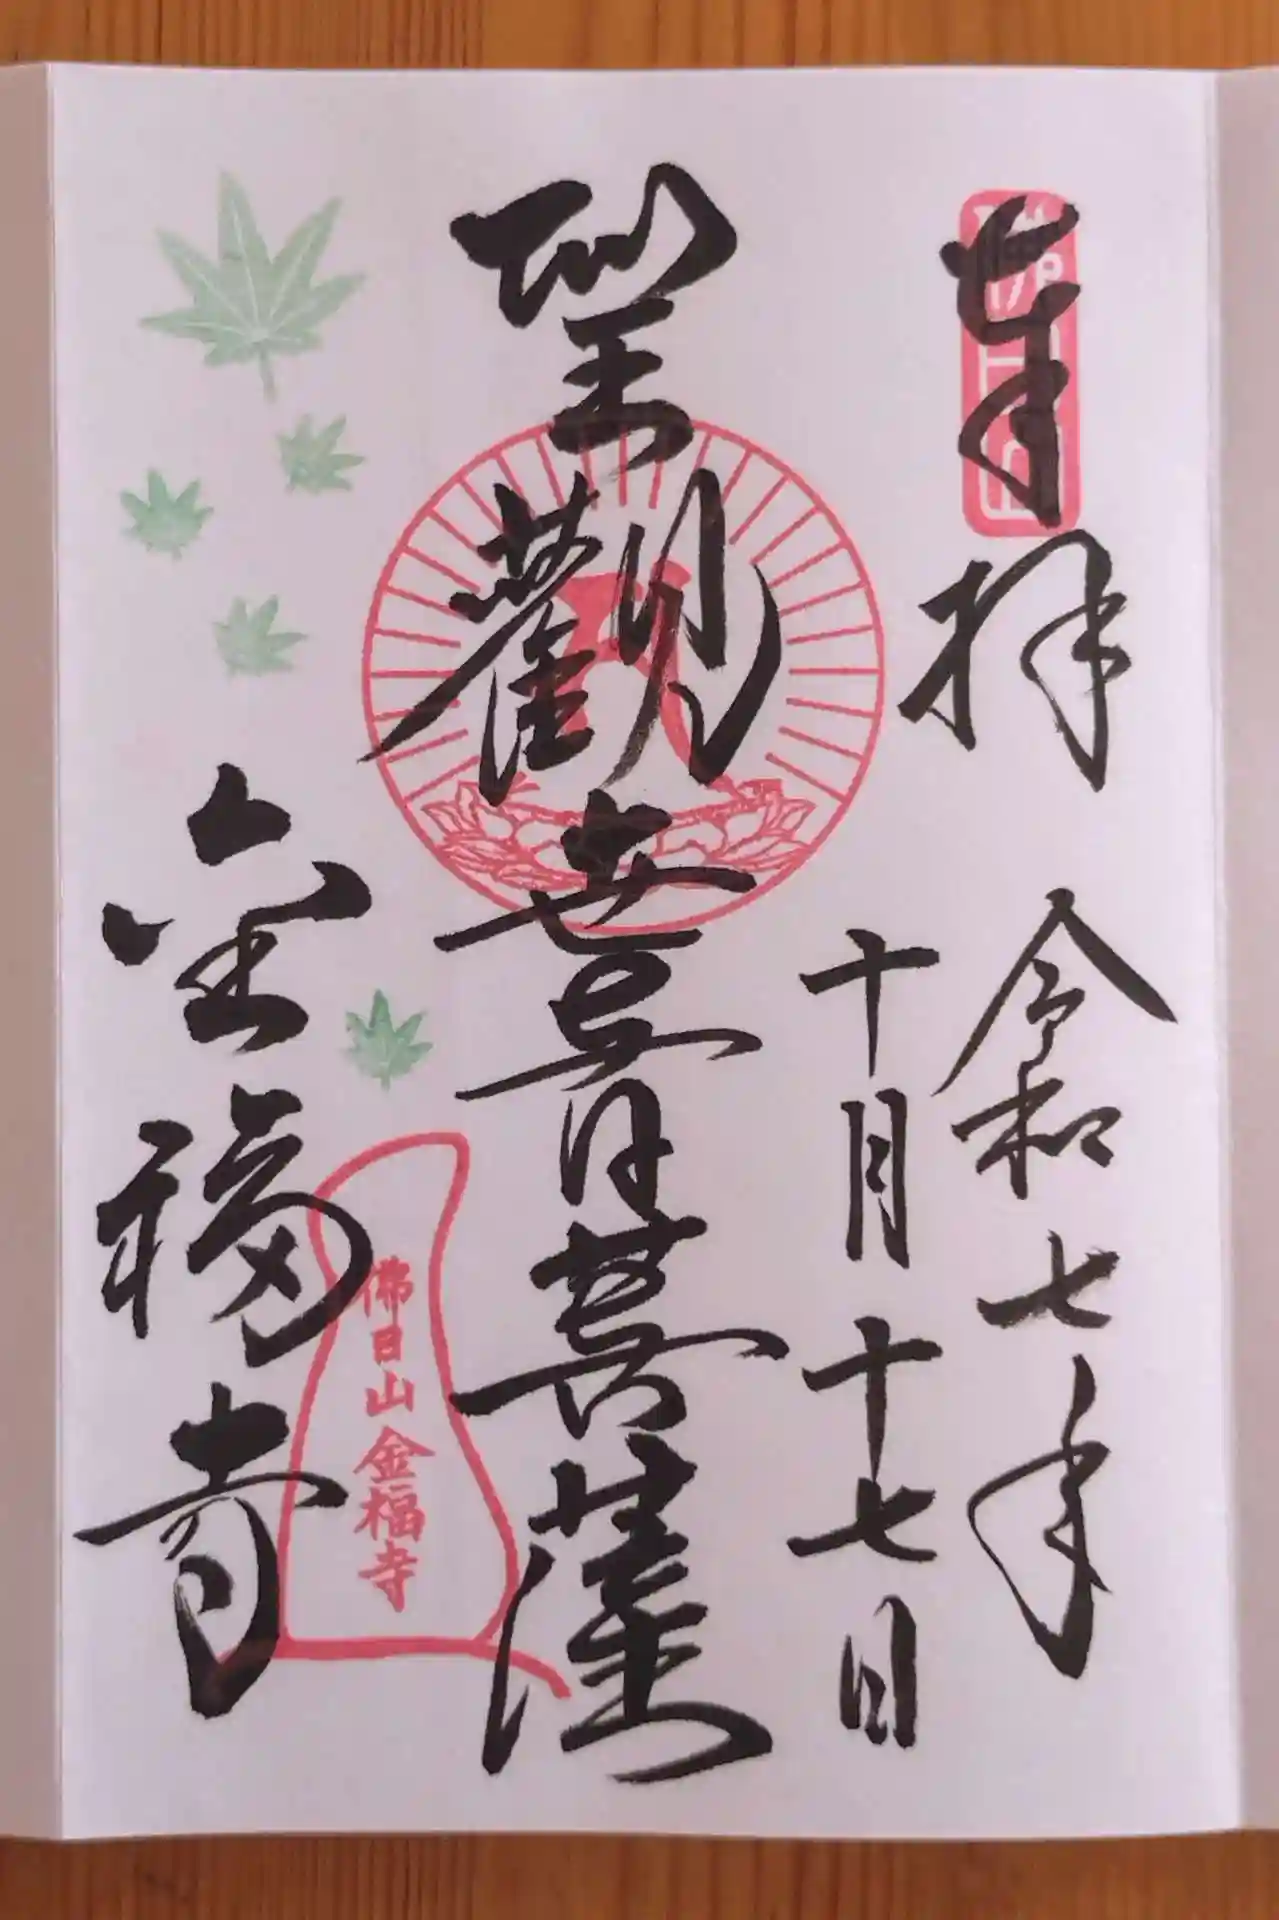 奉拝
令和七年
十月十七日
聖觀世音菩薩
佛日山金福寺
金福寺